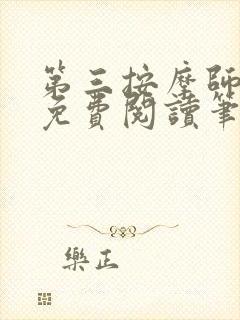 第三按摩師
免費閱讀筆
樂正